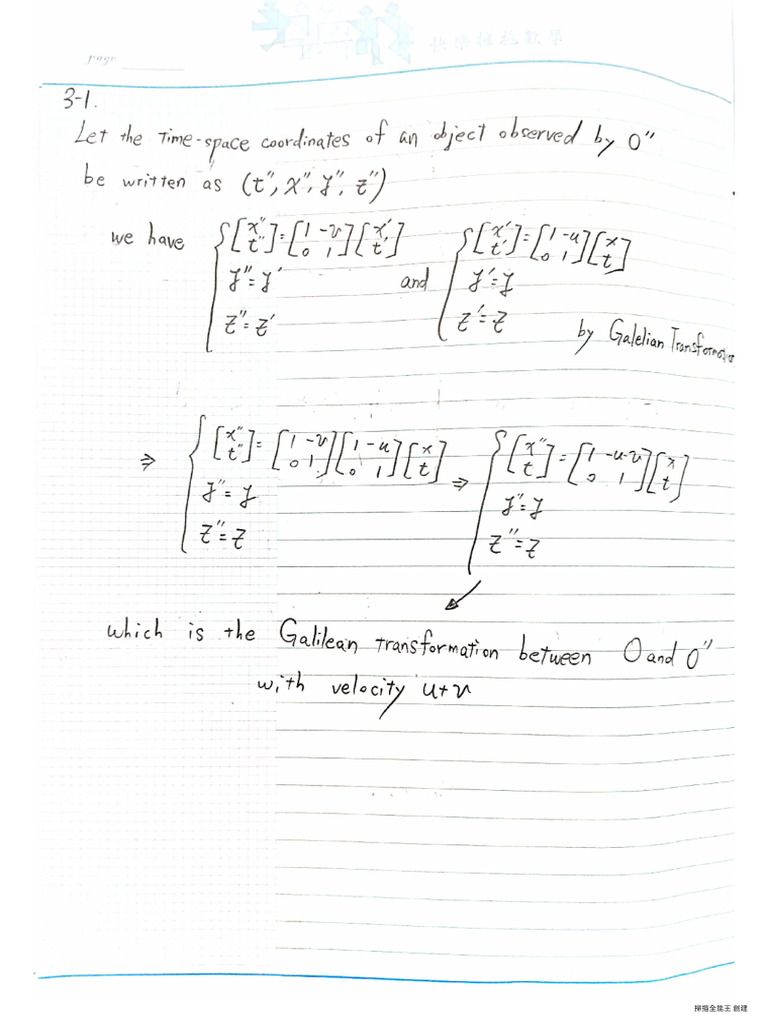 快樂推拖數學
page
3-1.
Let the Time-space coordinates of an object observed by O"
be written as (t", x", y", z")
we have { [x" t"] = [1 -v 0 1] [x' t'] and { [x' t'] = [1 -u 0 1] [x t]
y" = y' y' = y
z" = z' z' = z
by Galelian Transformation
⇒ { [x" t"] = [1 -v 0 1] [1 -u 0 1] [x t] ⇒ { [x" t] = [1 -u-v 0 1] [x t]
y" = y y" = y
z" = z z" = z
which is the Galilean transformation between O and O"
with velocity u+v
掃描全能王 創建